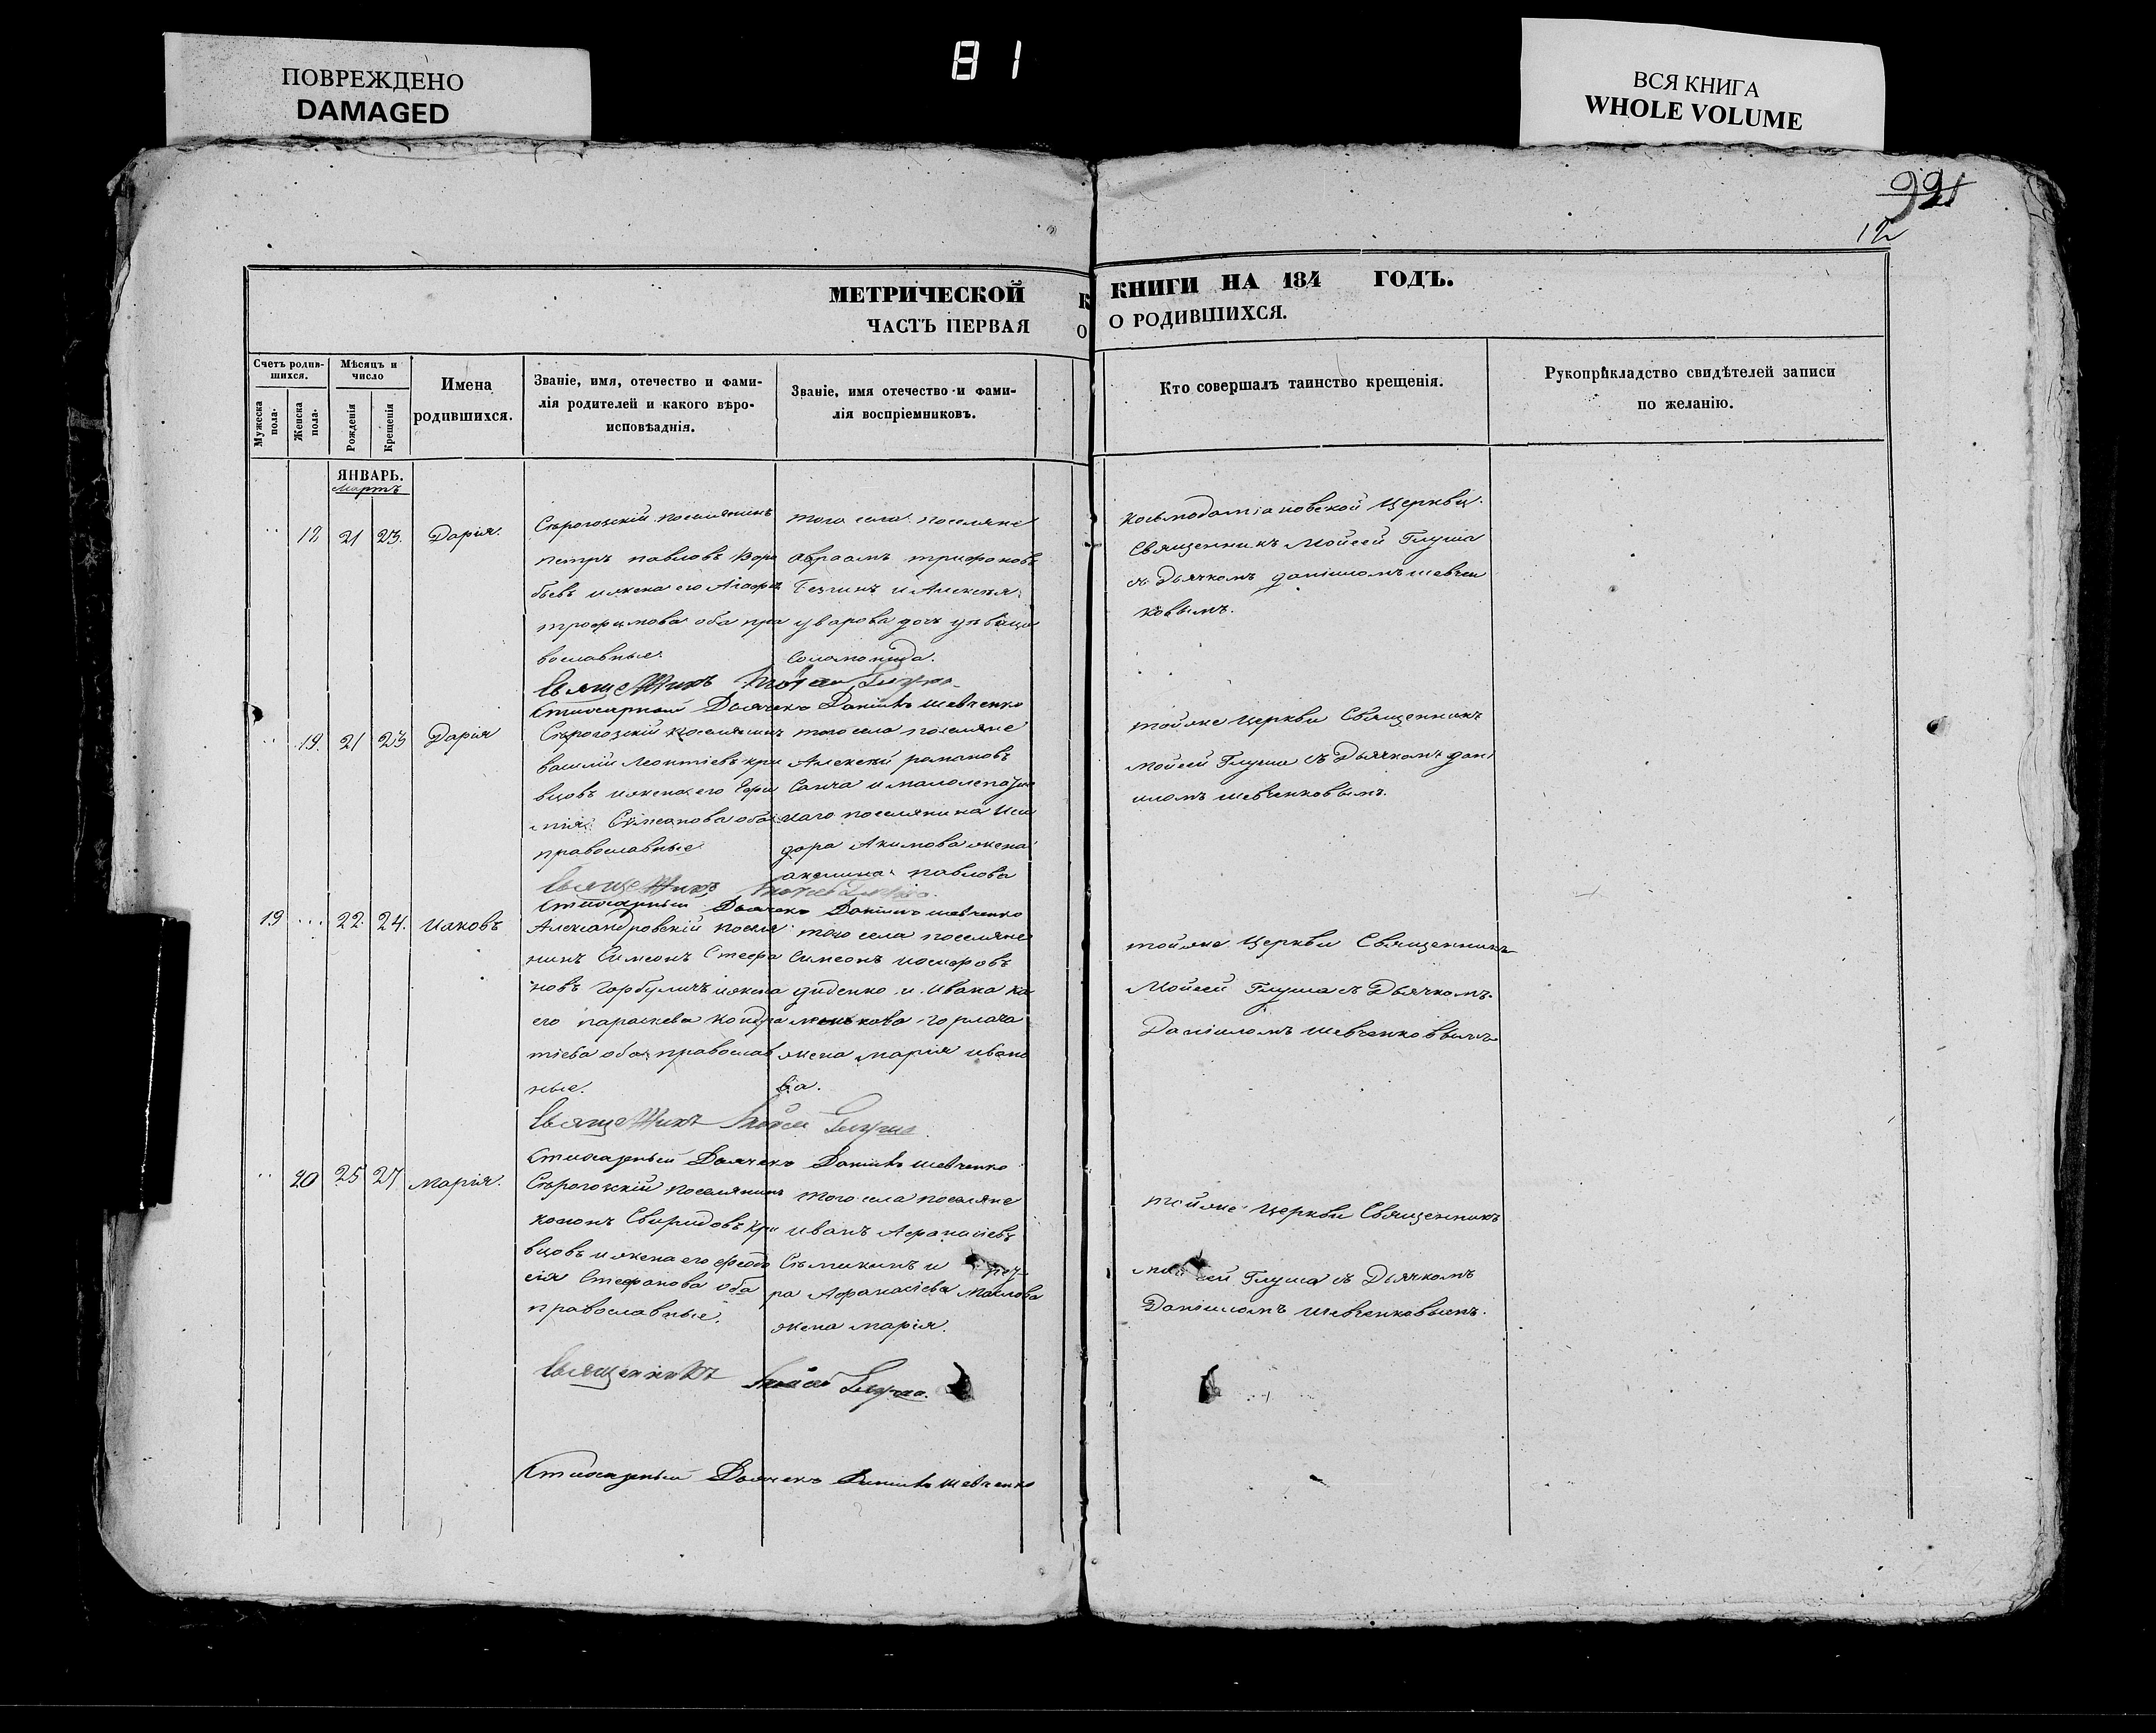 ПОВРЕЖДЕНО
DAMAGED
81
ВСЯ КНИГА
WHOLE VOLUME
12
МЕТРИЧЕСКОЙ
КНИГИ НА 184 ГОДЪ.
ЧАСТЬ ПЕРВАЯ
О РОДИВШИХСЯ.
Счетъ родив-
шихся.
Мужеска
пола.
Женска
пола.
Мѣсяцъ и
число
Рожденія
Крещенія
Имена
родившихся.
Званіе, имя, отечество и фами-
лія родителей и какого вѣро-
исповѣданія.
Званіе, имя отечество и фами-
лія воспріемниковъ.
Кто совершалъ таинство крещенія.
Рукоприкладство свидѣтелей записи
по желанію.
ЯНВАРЬ.
Мартъ
21 23. Дарія.
Сѣрогозскій поселянинъ
Петръ павловъ Воро
бьевъ и жена его Агафія
трофимова оба пра
вославные.
того села поселяне
Авраамъ трифоновъ
и Алексѣя
уварова дочь дѣвица
Соломонида.
Косьмодаміановской Церкви
Священникъ Мойсей Глуша
съ Дьячкомъ Даніиломъ шевчен
ковымъ.
Священникъ Мойсей Глуша
Стихарный Дьячекъ Даніилъ Шевченко
19. 21 23 Дарія
Сѣрогозскій поселянинъ
василій Леонтіевъ кри
вцовъ и жена его
Симеонова оба
православные
того села поселяне
Алексѣй романовъ
поселянина Иси
дора Акимова жена
акилина павлова
тойже Церкви Священникъ
Мойсей Глуша съ Дьячкомъ дані
иломъ шевченковымъ.
Священникъ Мойсей Глуша
Стихарный Дьячекъ Даніилъ шевченко
19 22. 24. Иаковъ
Александровскій поселя
нинъ Симеонъ Стефа
новъ и жена
его параскева кондра
тіева оба православ
ные.
того села поселяне
Симеонъ иосифовъ
диденко и Ивана
горлача
жена марія ивано
ва.
тойже Церкви Священникъ
Мойсей Глуша съ Дьячкомъ
Даніиломъ шевченковымъ
Священникъ Мойсей Глуша
Стихарный Дьячекъ Даніилъ шевченко
20 25 27 Марія.
Сѣрогозскій поселянинъ
Свиридовъ кри
вцовъ и жена его феодо
сія Стефанова оба
православные.
того села поселяне
иванъ Афанасіевъ
и
ра Афанасіева Маслова
жена марія.
тойже Церкви Священникъ
Глуша съ Дьячкомъ
Даніиломъ шевченковымъ.
Священникъ Мойсей Глуша.
Стихарный Дьячекъ Даніилъ шевченко